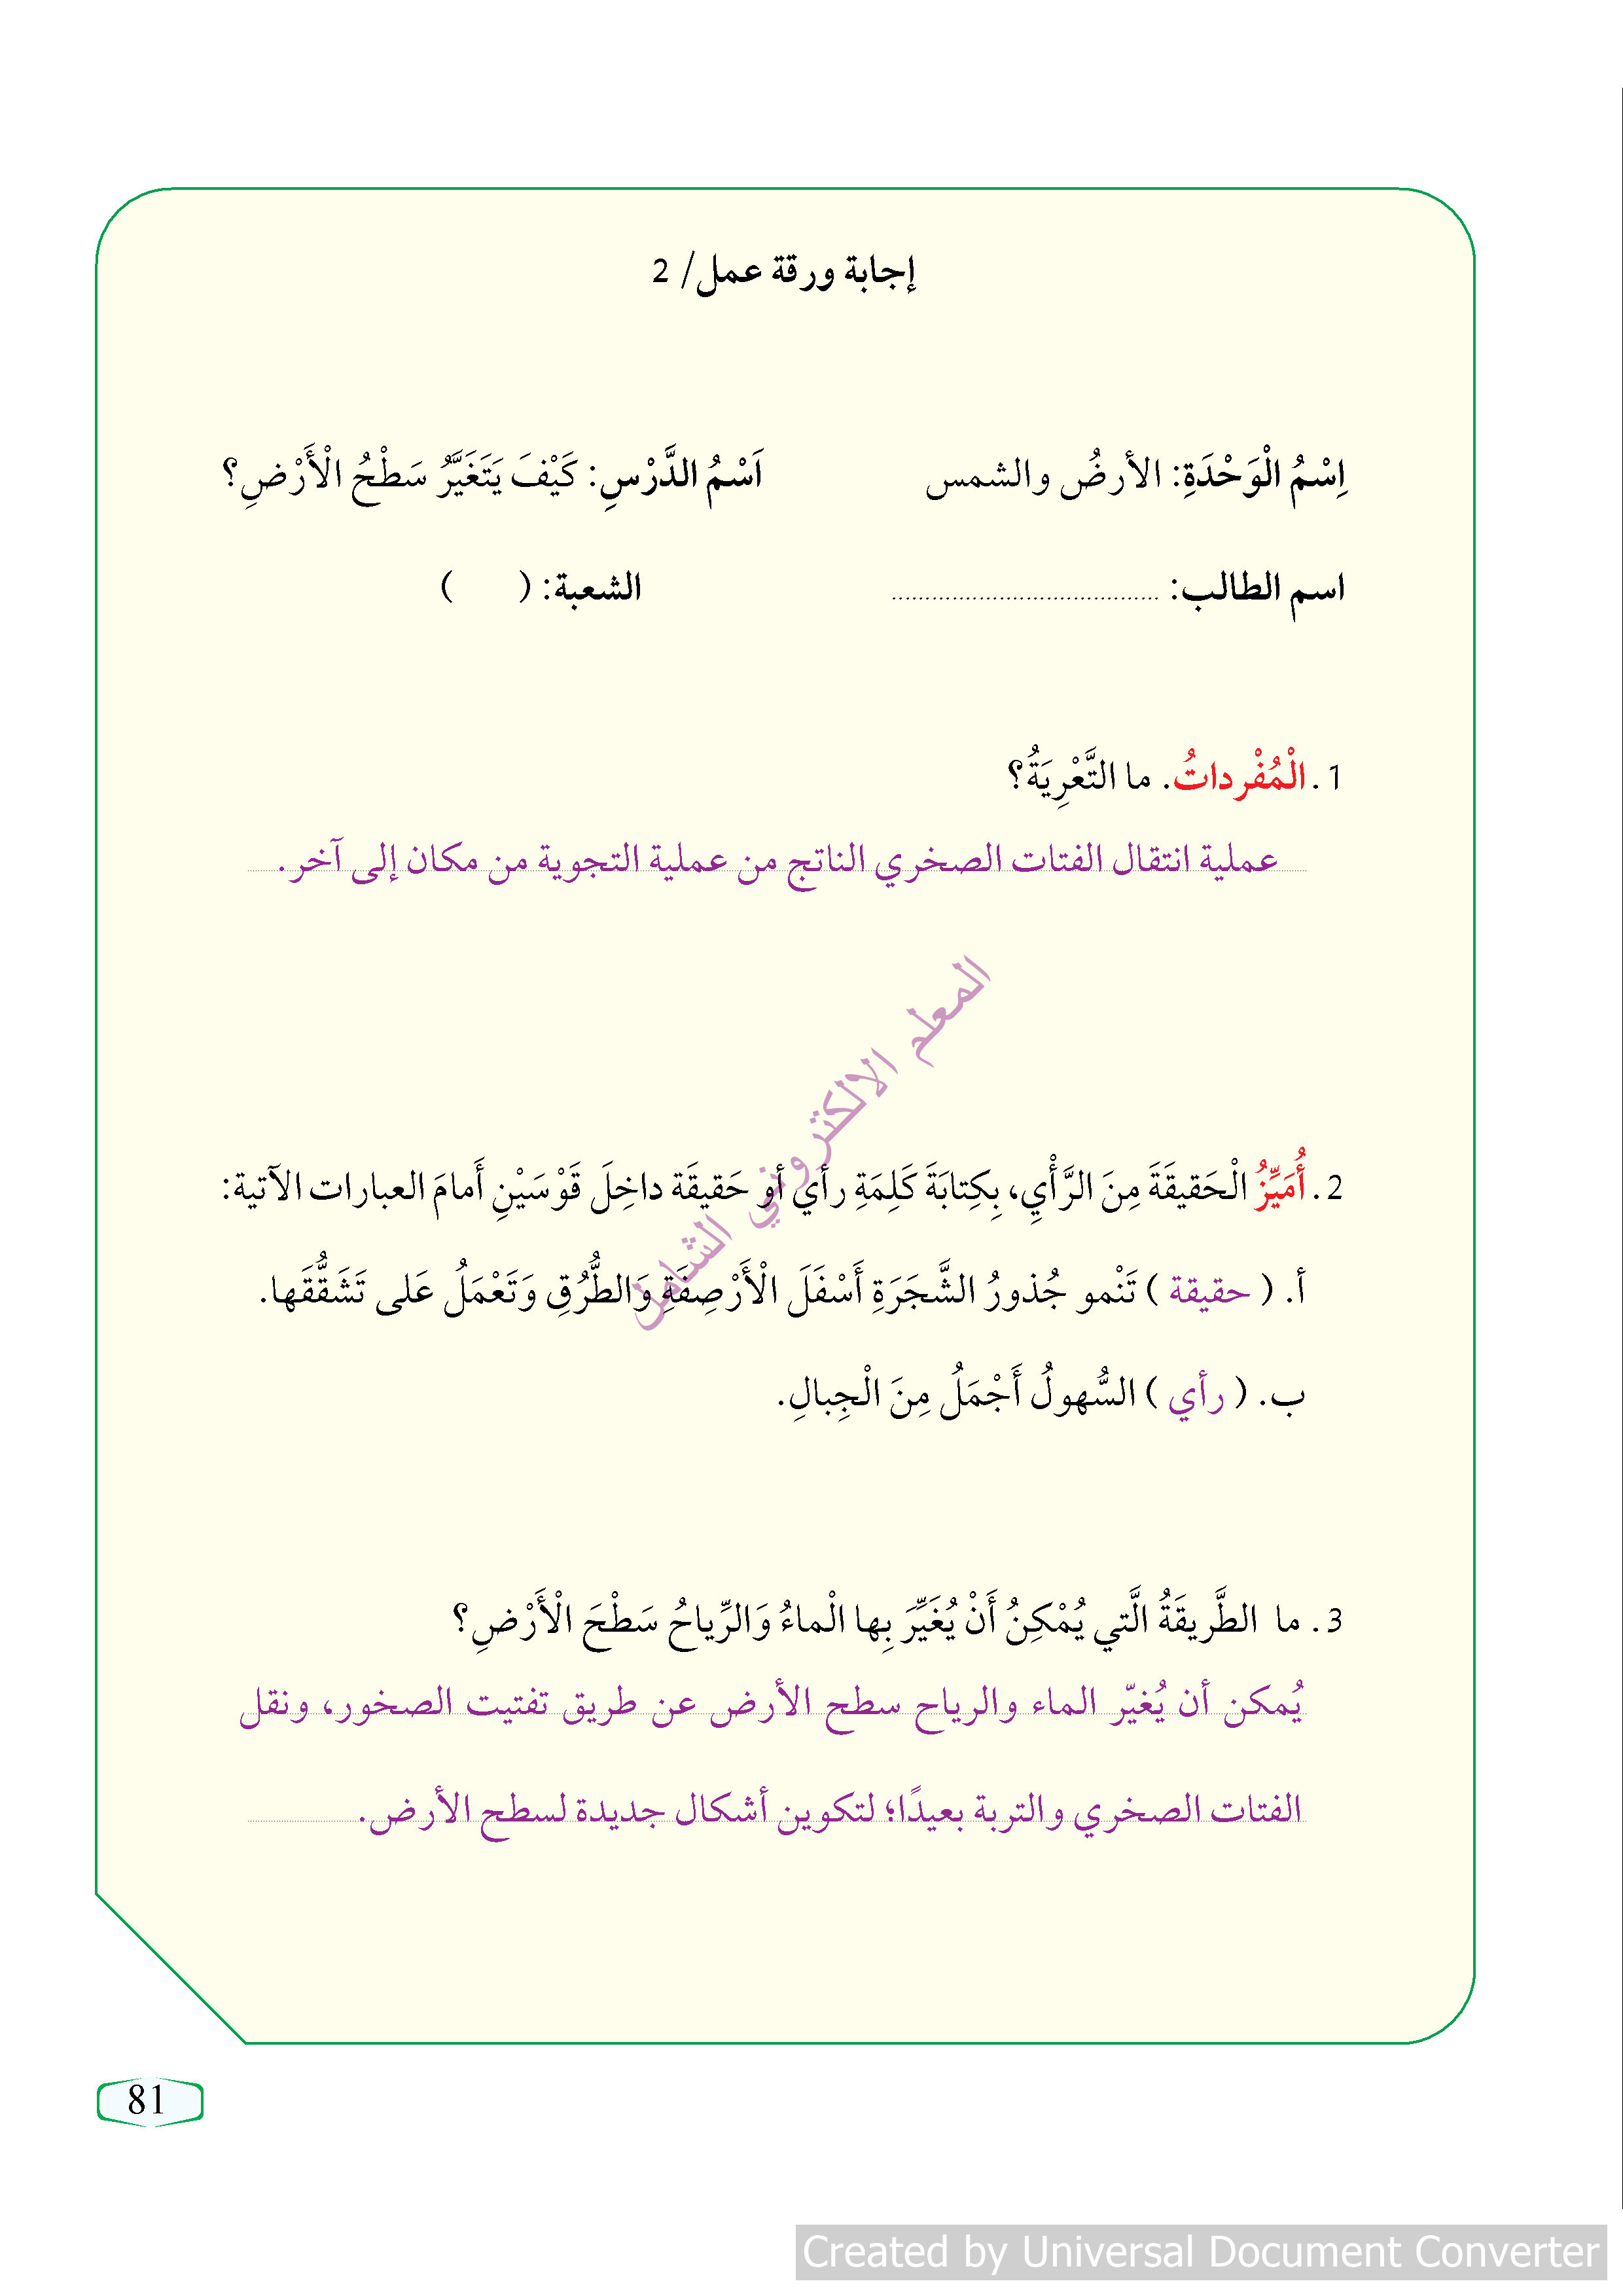 إجابة ورقة عمل/ 2
اِسْمُ الْوَحْدَةِ: الأرضُ والشمس اَسْمُ الدَّرْسِ: كَيْفَ يَتَغَيَّرُ سَطْحُ الْأَرْضِ؟
اسم الطالب: ........................................ الشعبة: ( )
1. الْمُفْرداتُ. ما التَّعْرِيَةُ؟
عملية انتقال الفتات الصخري الناتج من عملية التجوية من مكان إلى آخر.
2. أُمَيِّزُ الْحَقيقَةَ مِنَ الرَّأْيِ، بِكِتابَةَ كَلِمَةِ رأي أو حَقيقَة داخِلَ قَوْسَيْنِ أَمامَ العبارات الآتية:
أ. ( حقيقة ) تَنْمو جُذورُ الشَّجَرَةِ أَسْفَلَ الْأَرْصِفَةِ وَالطُّرُقِ وَتَعْمَلُ عَلى تَشَقُّقَها.
ب. ( رأي ) السُّهولُ أَجْمَلُ مِنَ الْجِبالِ.
3. ما الطَّريقَةُ الَّتي يُمْكِنُ أَنْ يُغَيِّرَ بِها الْماءُ وَالرِّياحُ سَطْحَ الْأَرْضِ؟
يُمكن أن يُغيّر الماء والرياح سطح الأرض عن طريق تفتيت الصخور، ونقل
الفتات الصخري والتربة بعيدًا؛ لتكوين أشكال جديدة لسطح الأرض.
المعلم الالكتروني الشامل
81
Created by Universal Document Converter